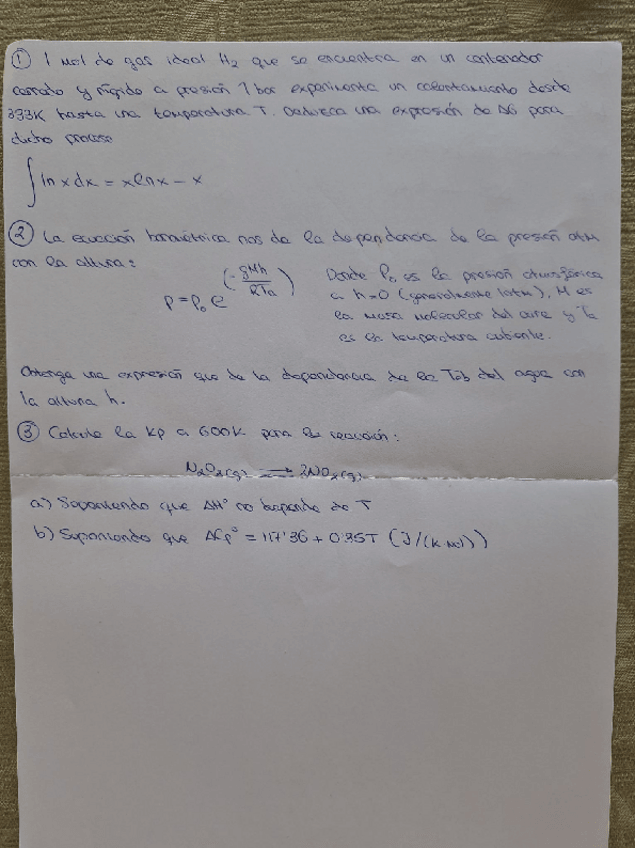 ① 1 Mol de gas ideal H₂ que se encuentra en un contenedor
cerrado y rígido a presión 1 bar experimenta un calentamiento desde
333K hasta una temperatura T. Deduzca una expresión de ΔG para
dicho proceso
∫ ln x dx = x ln x - x
② La ecuación barométrica nos da la dependencia de la presión atm
con la altura:
P = P₀ e^(-gMh/RTa)
Donde P₀ es la presión atmosférica
a h=0 (generalmente 1atm), M es
la masa molecular del aire y Ta
es la temperatura ambiente.
Obtenga una expresión que de la dependencia de la Teb del agua con
la altura h.
③ Calcule la Kp a 600K para la reacción:
N₂O₄(g) ⇌ 2NO₂(g)
a) Suponiendo que ΔH° no depende de T
b) Suponiendo que ΔCp° = 117'36 + 0'85T (J/(K·mol))